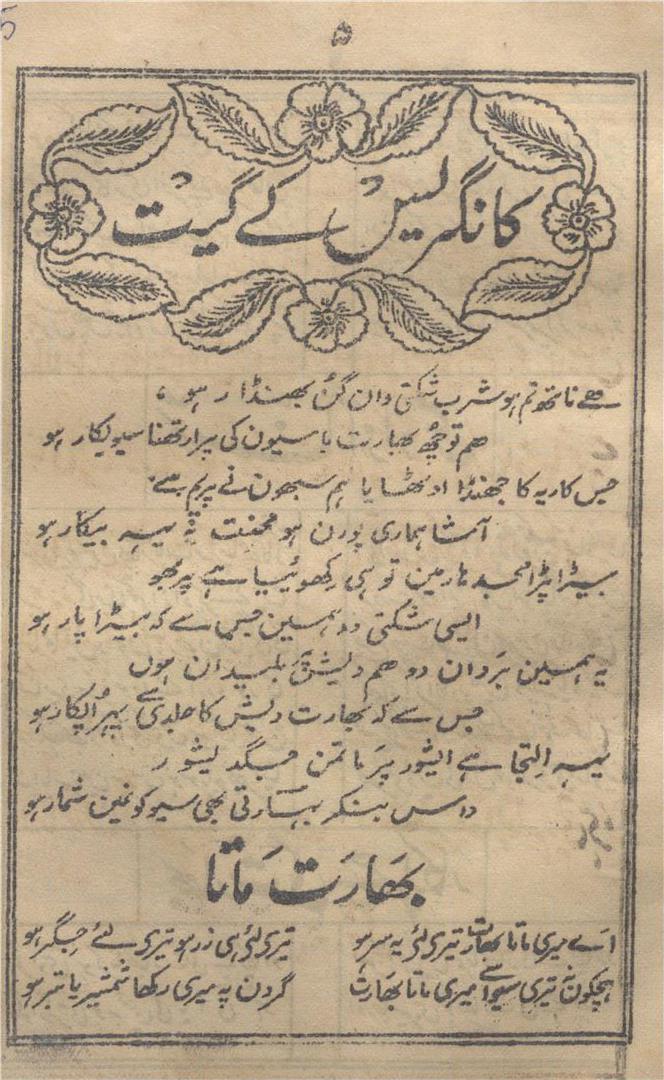 ۵
5
کانگریس کے گیت
ہے ناتھ تم ہو شرب شکتی دان گن بھنڈار ہو ،
ہم توچھ بھارت باسیون کی پرارتھنا سیویکار ہو
جس کاریہ کا جھنڈا اوٹھایا ہم سبھون نے پریم سے
آشا ہماری پورن ہو محنت نہ یہہ بیکار ہو
بیڑا پڑا منجدھار مین تو ہی رکھوئییا ہے پربھو
ایسی شکتی دو ہمین جس سے کہ بیڑا پار ہو
یہ ہمین بردان دو ہم دیش پہ بلیدان ہوں
جس سے کہ بھارت دیش کا جلدی سے پھر اپکار ہو
یہہ التجا ہے ایشور پرماتمن جگدیشور
داس بنکر بہارتی بھی سیوکو نمین شمار ہو
بھارت ماتا
اے میری ماتا بھارت تیری لئی یہ سر ہو
تیری لئی ہی زر ہو تیری لئے جگر ہو
ہچکون نہ تیری سیوا سے امیری ماتا بھارت
گردن پہ میری رکھا شمشیر یا تبر ہو